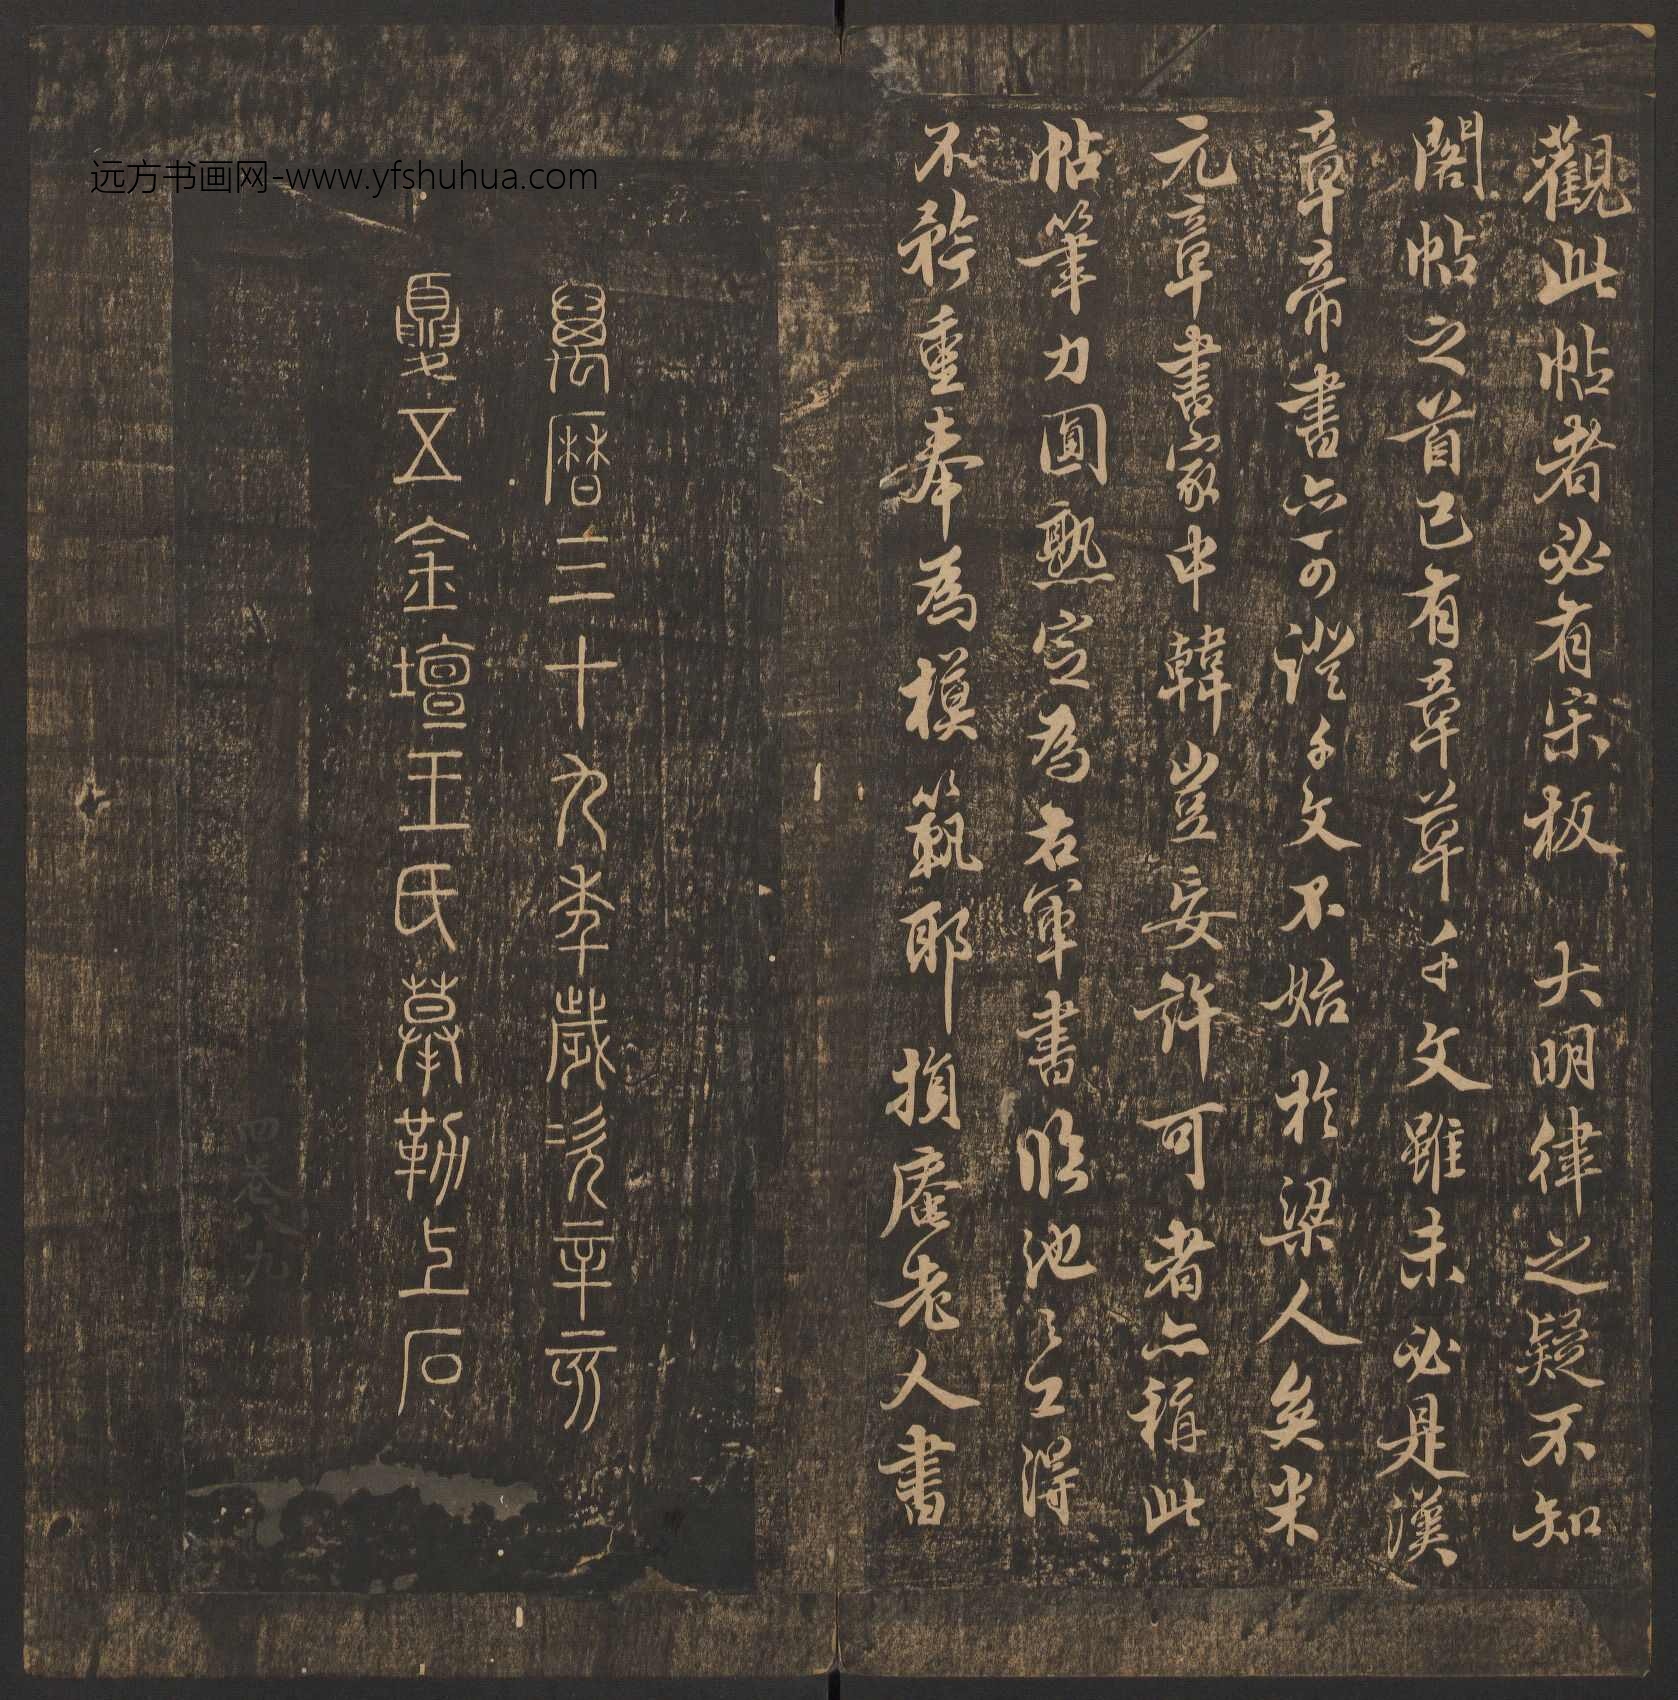 觀此帖者必有宋板大明律之疑不知
閣帖之首已有章草千文雖未必是漢
章帝書亦可證千文不始於梁人矣米
元章書家中韓豈妄許可者亦稱此
帖筆力圓熟定為右軍書臨池之工得
不矜重奉為模範耶損庵老人書
萬曆三十九年歲次辛亥
夏五金壇王氏摹勒上石
四卷八九
远方书画网-www.yfshuhua.com